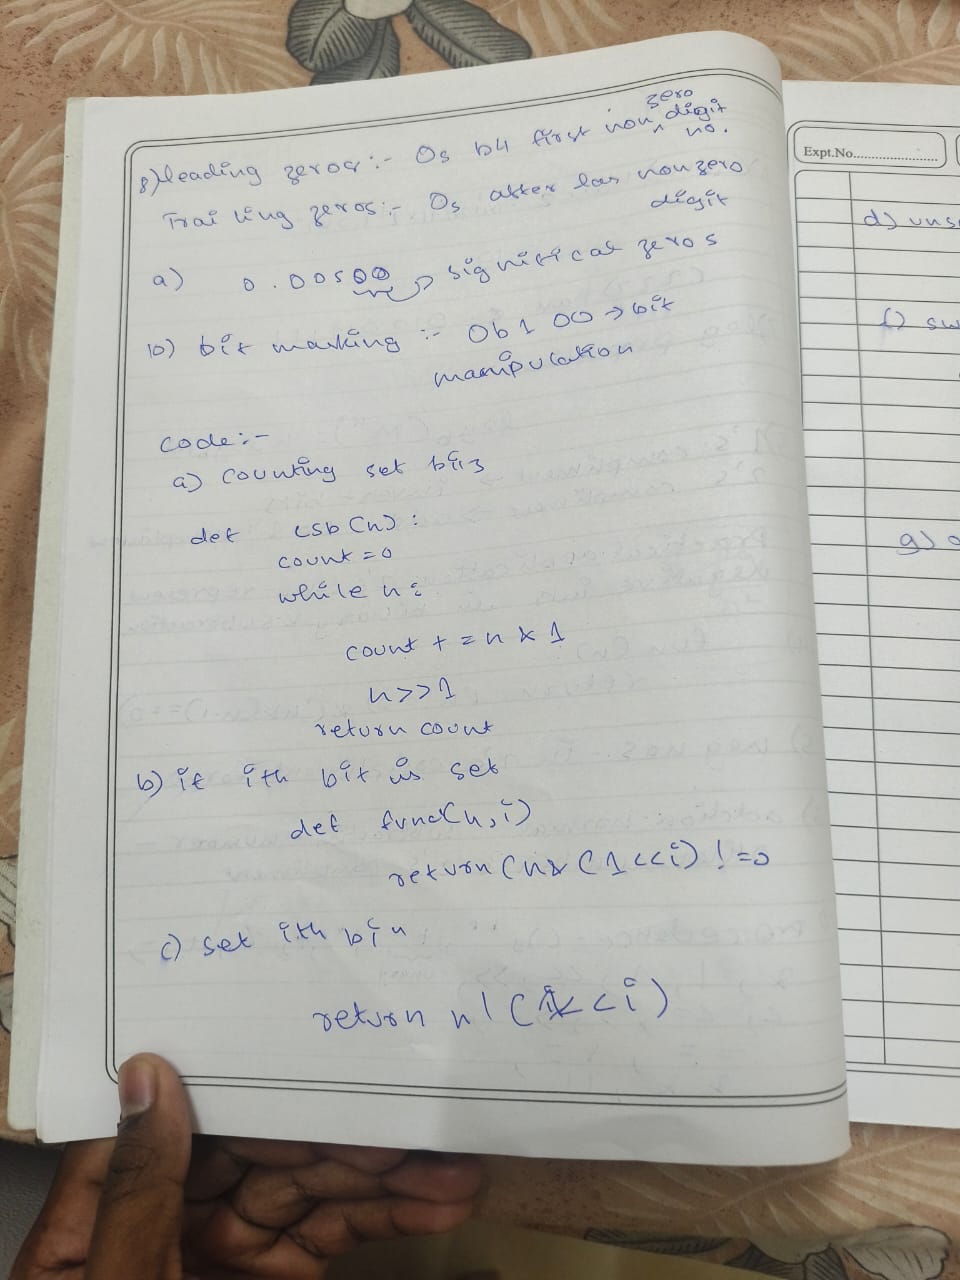 8) leading zeros :- 0s b4 first non zero digit no.
Trailing zeros :- 0s after las nonzero digit
a) 0.00500 significat zeros
10) bit masking :- 0b100 → bit
manipulation
code :-
a) counting set bits
def csb(n):
count = 0
while n:
count += n & 1
n>>1
return count
b) if ith bit is set
def func(n,i)
return (n& (1<<i) != 0
c) set ith bit
return n | (1<<i)
Expt.No.
d) uns
f) sw
g)